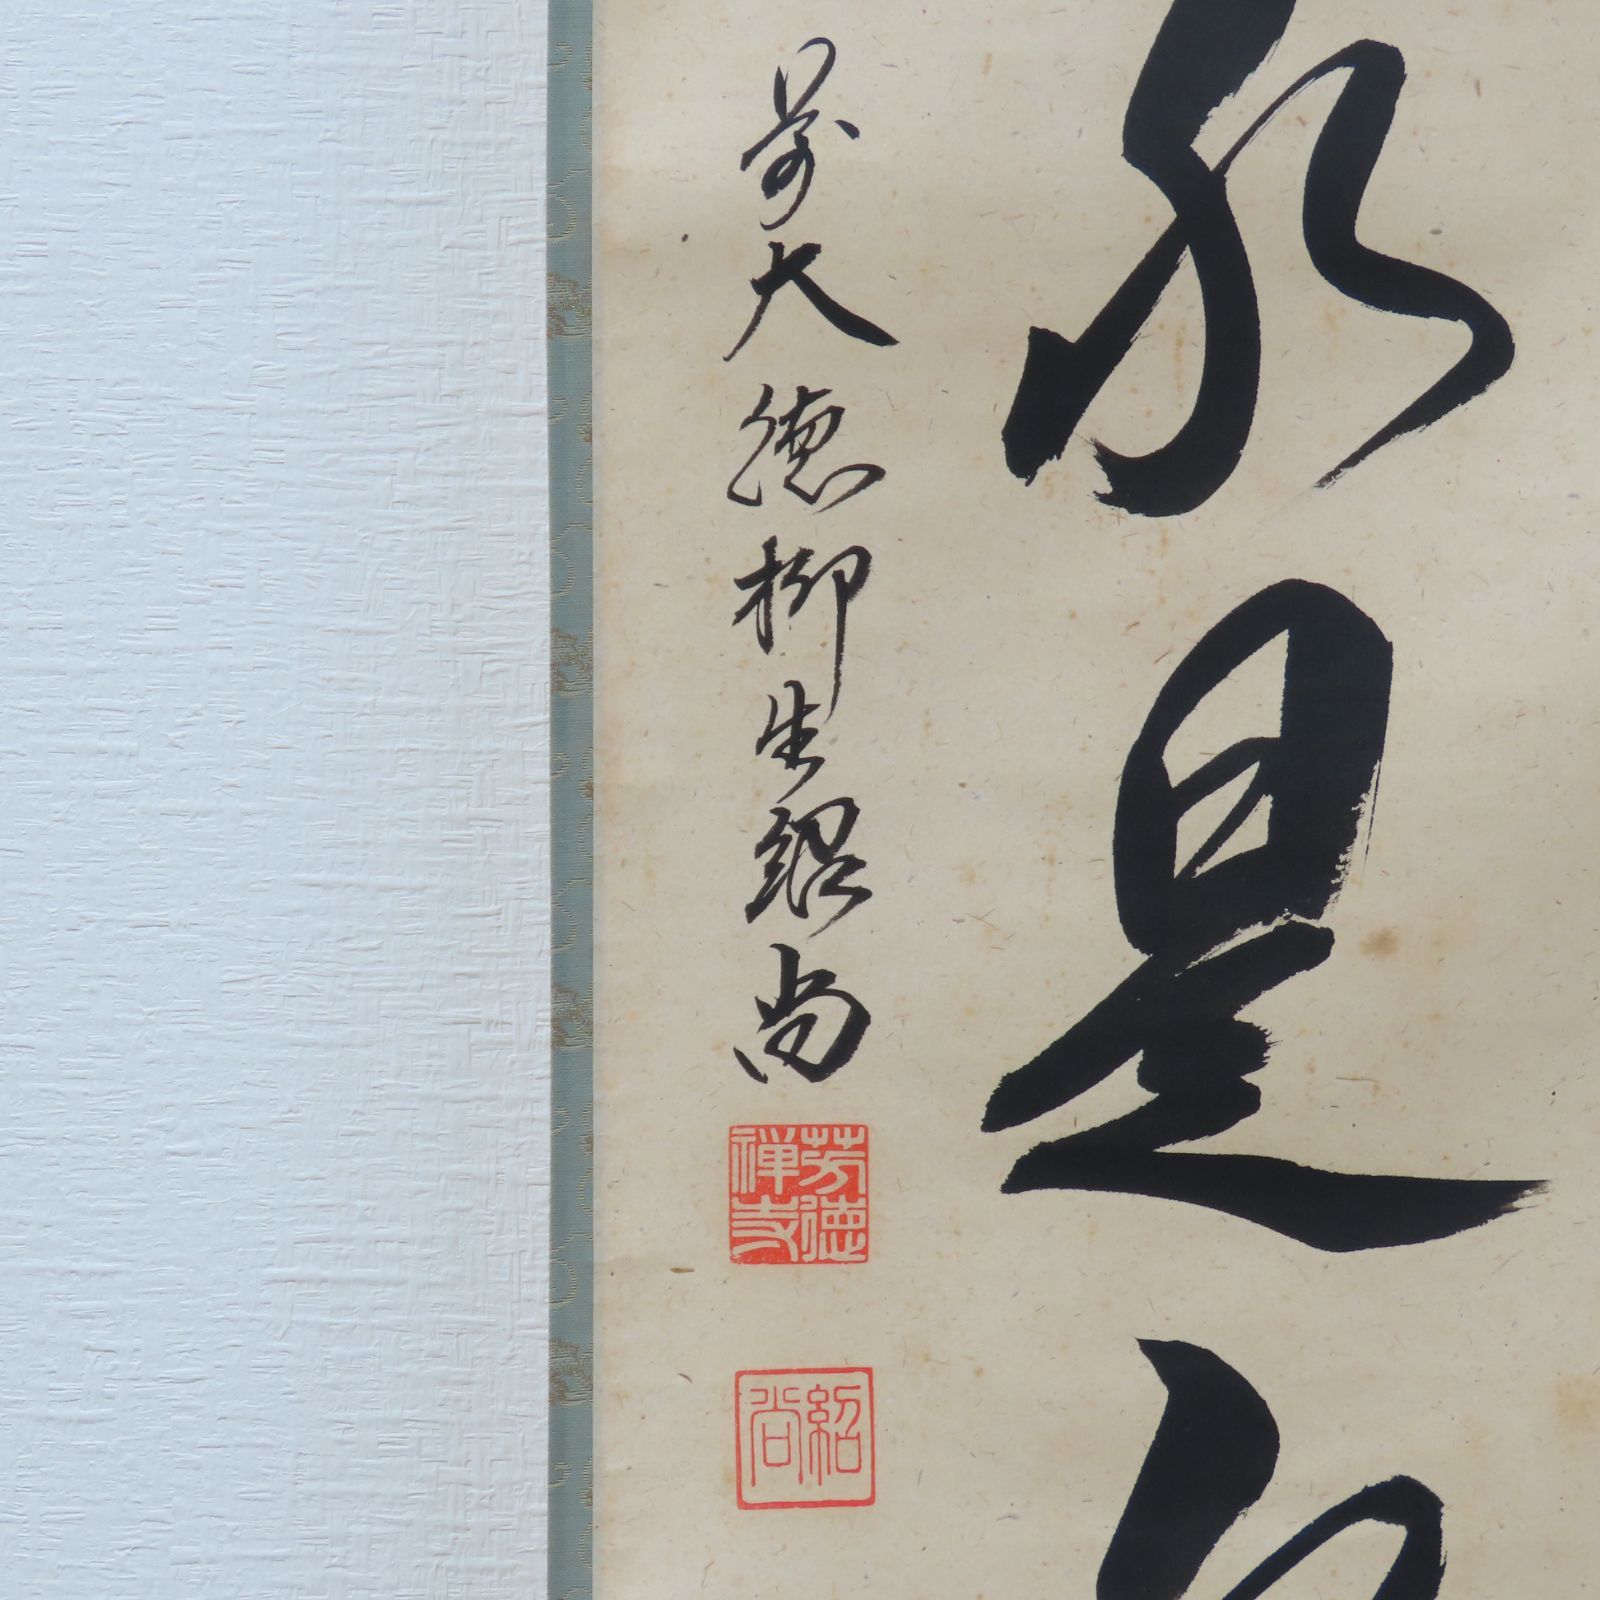 是
前大徳柳生紹尚
芳徳
禅寺
紹
尚